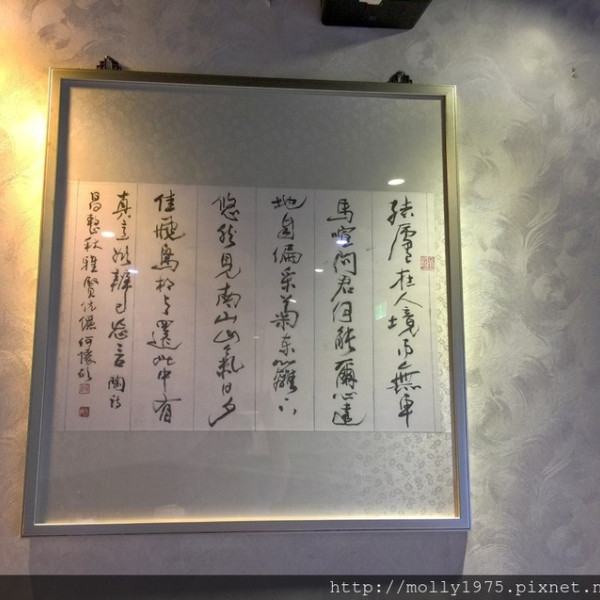 結廬在人境而無車
馬喧問君何能爾心遠
地自偏采菊東籬下
悠然見南山山氣日夕
佳飛鳥相與還此中有
真意欲辨已忘言 陶詩
昌整秋雅賢伉儷 何懷碩
http://molly1975.pixnet.n